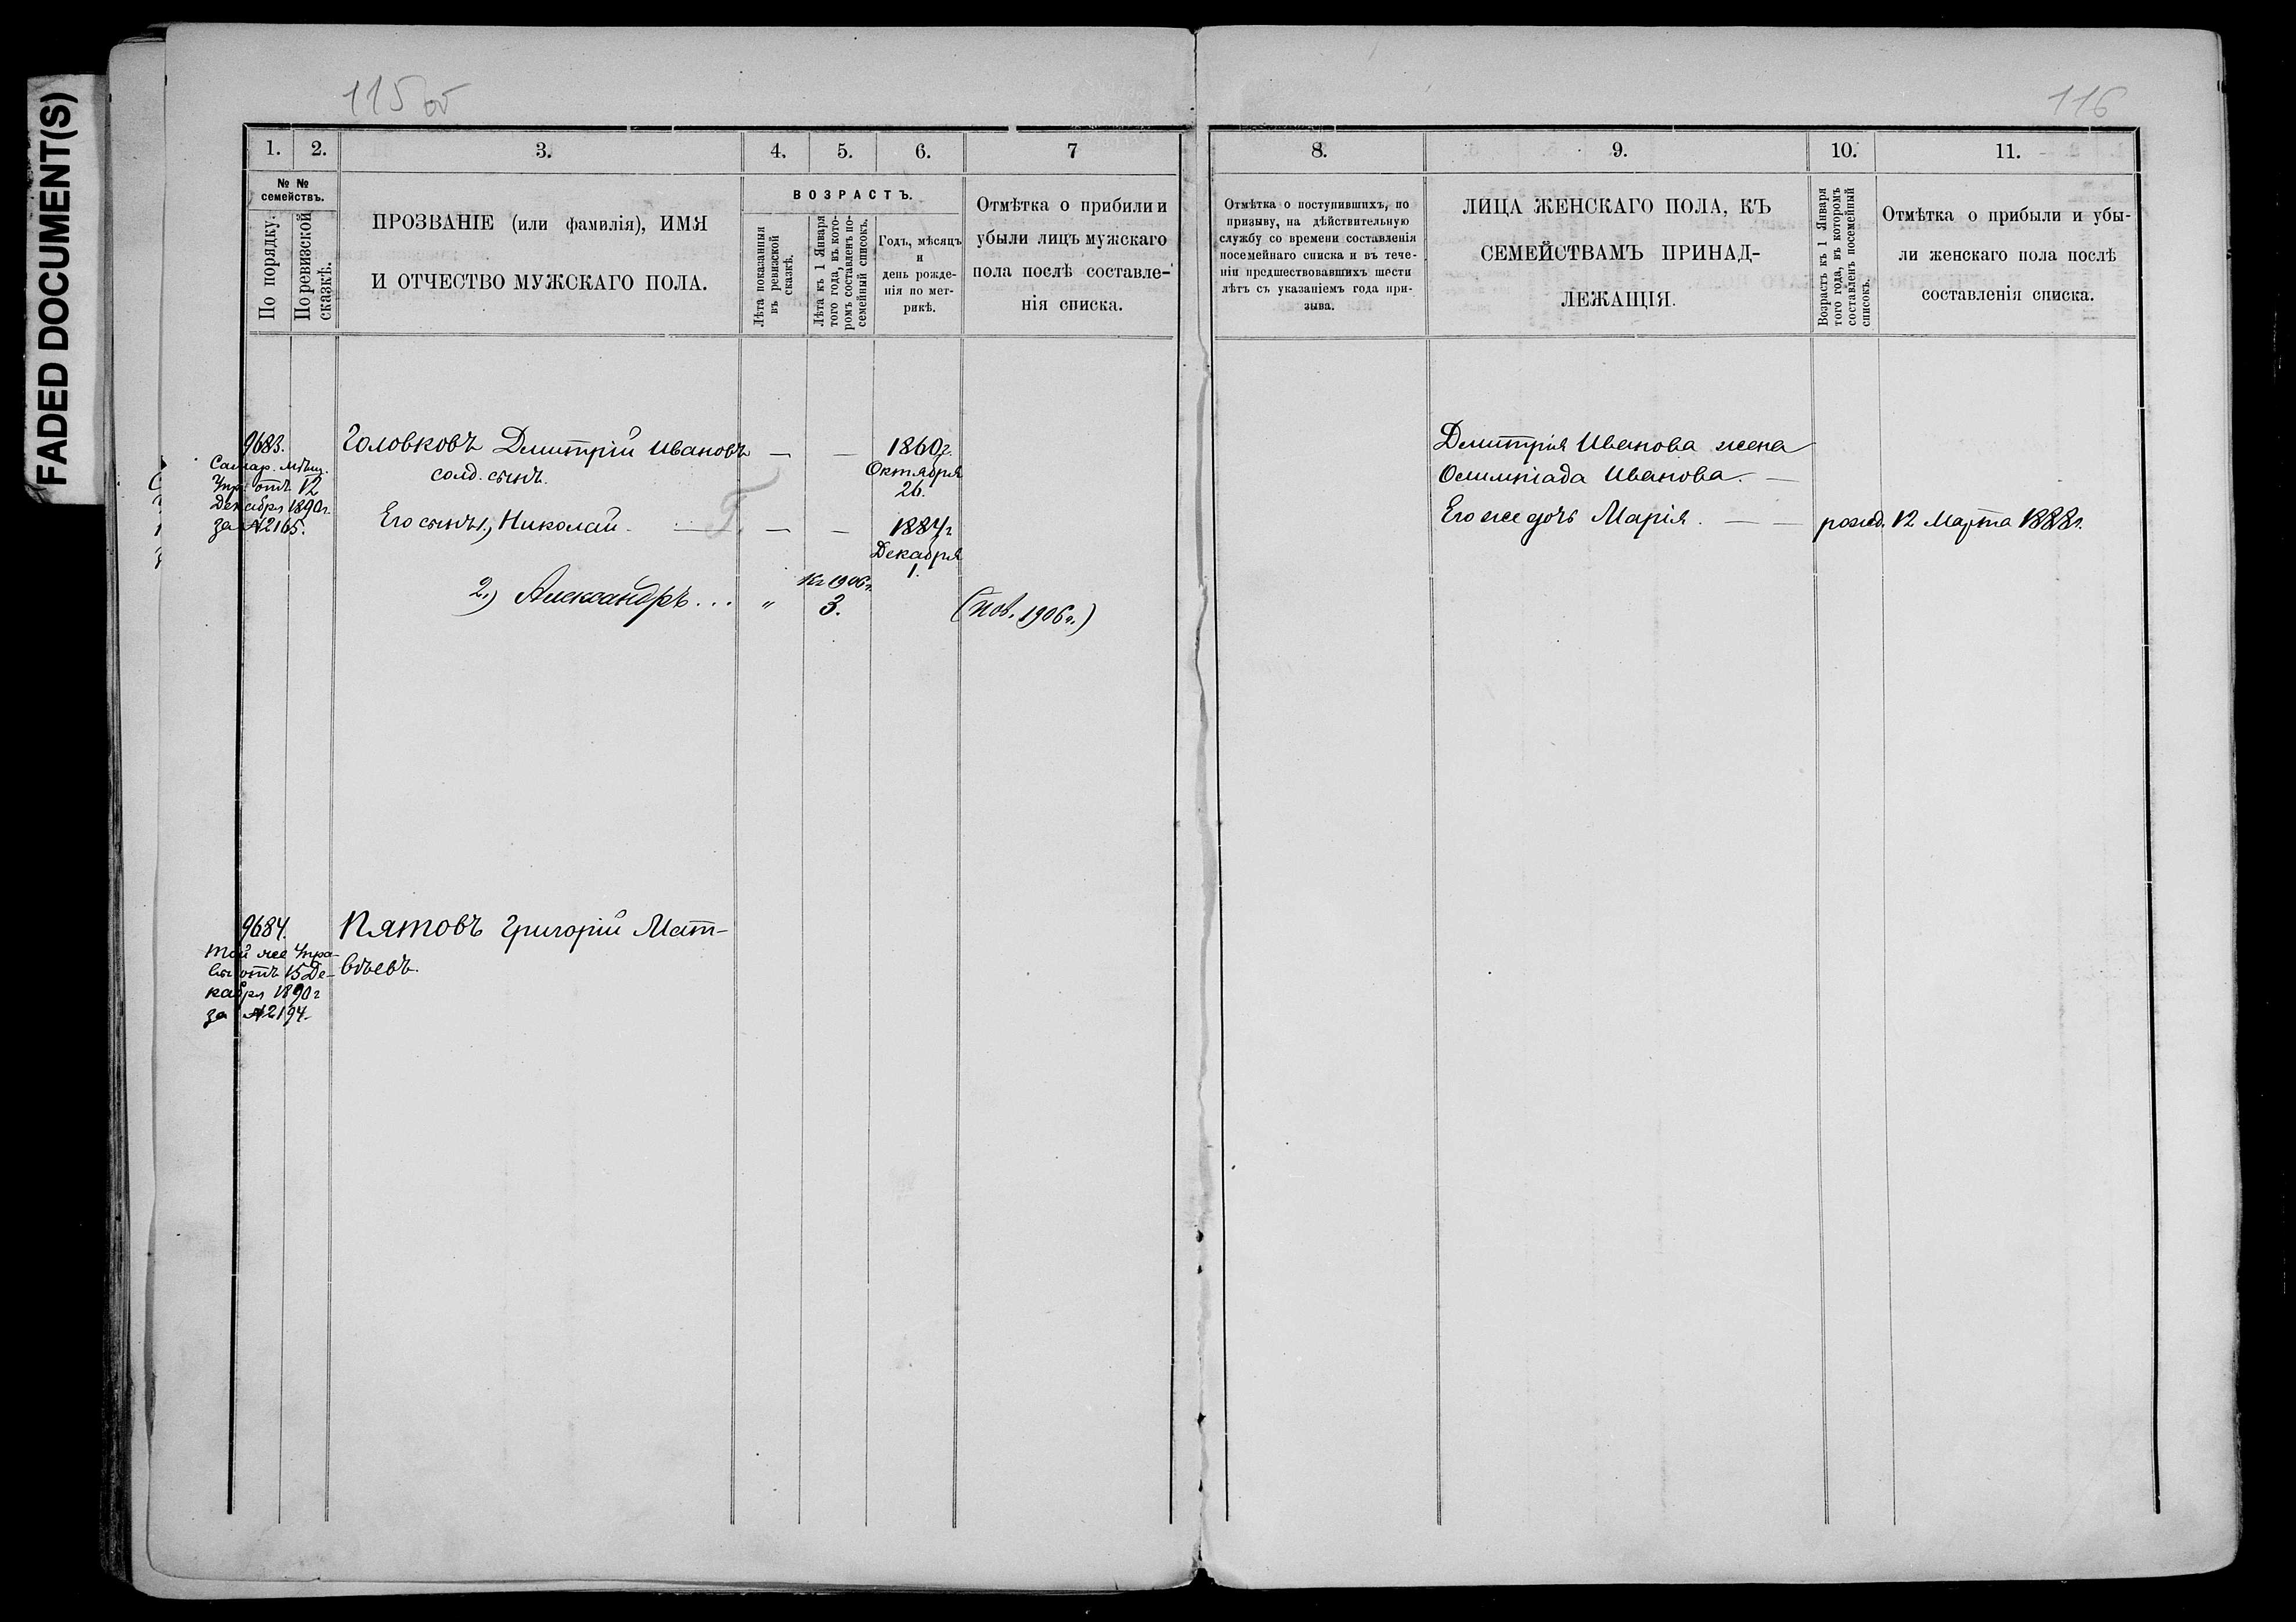 FADED DOCUMENT(S)
115 об
116
1.
2.
3.
4.
5.
6.
7
№ №
семействъ.
По порядку.
По ревизской
сказкѣ.
ПРОЗВАНІЕ (или фамилія), ИМЯ
И ОТЧЕСТВО МУЖСКАГО ПОЛА.
ВОЗРАСТЪ.
Лѣта показанныя
въ ревизской
сказкѣ.
Лѣта къ 1 Января
того года, въ кото-
ромъ составленъ по-
семейный списокъ.
Годъ, мѣсяцъ
и
день рожде-
нія по мет-
рикѣ.
Отмѣтка о прибили и
убыли лицъ мужскаго
пола послѣ составле-
нія списка.
9683.
Самар. мѣщ.
Упр. отъ 12
Декабря 1890г.
за №2165.
Головковъ Дмитрій Ивановъ — — 1860г.
солд. сынъ.
Октября
26.
Его сынъ 1, Николай — — 1884г
Декабря
1.
Къ 1906г.
2,) Александръ... „ 3. (Нов. 1906г.)
9684.
Той же Упра-
вы отъ 15 Де-
кабря 1890г
за №2194.
Пятовъ Григорій Мат-
вѣевъ.
8.
9.
10.
11.
Отмѣтка о поступившихъ, по
призыву, на дѣйствительную
службу со времени составленія
посемейнаго списка и въ тече-
ніи предшествовавшихъ шести
лѣтъ съ указаніемъ года при-
зыва.
ЛИЦА ЖЕНСКАГО ПОЛА, КЪ
СЕМЕЙСТВАМЪ ПРИНАД-
ЛЕЖАЩІЯ.
Возрастъ къ 1 Января
того года, въ которомъ
составленъ посемейный
списокъ.
Отмѣтка о прибыли и убы-
ли женскаго пола послѣ
составленія списка.
Дмитрія Иванова жена
Олимпіада Иванова. —
Его же дочь Марія. — — рожд. 12 Марта 1888г.